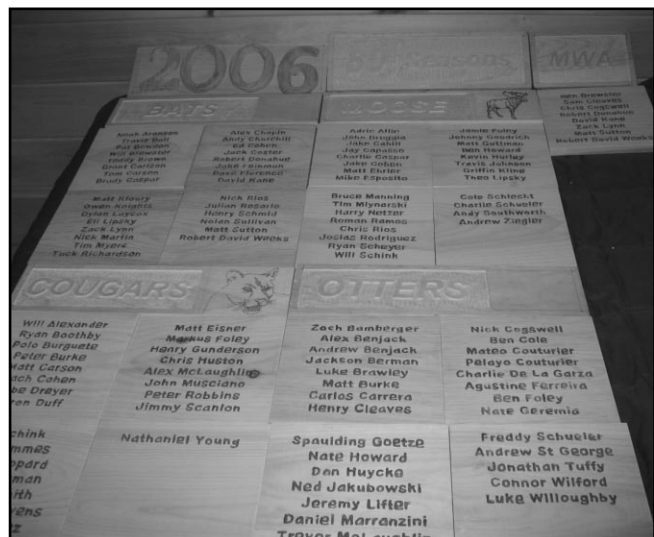 2006
Seasons
MWA
BATS
MOOSE
Ben Brewster
Sam Cleaves
Chris Cogswell
Robert Donahue
David Kane
Zack Lynn
Matt Sutton
Robert David Weeks
Noah Aransen
Travis Bull
Pat Bowden
Will Brewster
Teddy Brown
Grant Carlson
Tom Carson
Brady Caspar
Alex Chapin
Andy Churchill
Ed Cohen
Jack Coster
Robert Donahue
Jake Feinman
Dave Florence
David Kane
Adric Allar
John Bruggia
Jake Cahill
Jay Capasso
Charlie Caspar
Jake Cohen
Matt Ehrler
Mike Esposito
Jamie Foley
Johnny Goodrich
Matt Guttman
Ben Howard
Kevin Hurley
Travis Johnson
Griffin Kling
Theo Lipsky
Matt Kloury
Owen Knights
Dylan Laycox
Eli Lipsky
Zack Lynn
Nick Martin
Tim Myers
Tuck Richardson
Nick Rios
Julian Rosario
Henry Schmid
Nolan Sullivan
Matt Sutton
Robert David Weeks
Bruce Manning
Tim Mlynarski
Harry Netzer
Roman Ramos
Chris Rios
Josias Rodriguez
Ryan Scheyer
Will Schink
Cole Schlecht
Charlie Schueler
Andy Southworth
Andrew Ziegler
COUGARS
OTTERS
Will Alexander
Ryan Boothby
Polo Burguete
Peter Burke
Matt Carson
ach Cohen
be Dreyer
ron Duff
Matt Eisner
Markus Foley
Henry Gunderson
Chris Huston
Alex McLaughlin
John Musciano
Peter Robbins
Jimmy Scanlon
Zach Bamberger
Alex Benjack
Andrew Benjack
Jackson Berman
Luke Brawley
Matt Burke
Carlos Carrera
Henry Cleaves
Nick Cogswell
Ben Cole
Mateo Couturier
Pelayo Couturier
Charlie De La Garza
Agustine Ferreira
Ben Foley
Nate Geremia
chink
mmes
ppard
man
ith
vens
ez
Nathaniel Young
Spaulding Goetze
Nate Howard
Dan Huycke
Ned Jakubowski
Jeremy Lifter
Daniel Marranzini
Trevor McLaughlin
Freddy Schueler
Andrew St George
Jonathan Tuffy
Connor Wilford
Luke Willoughby